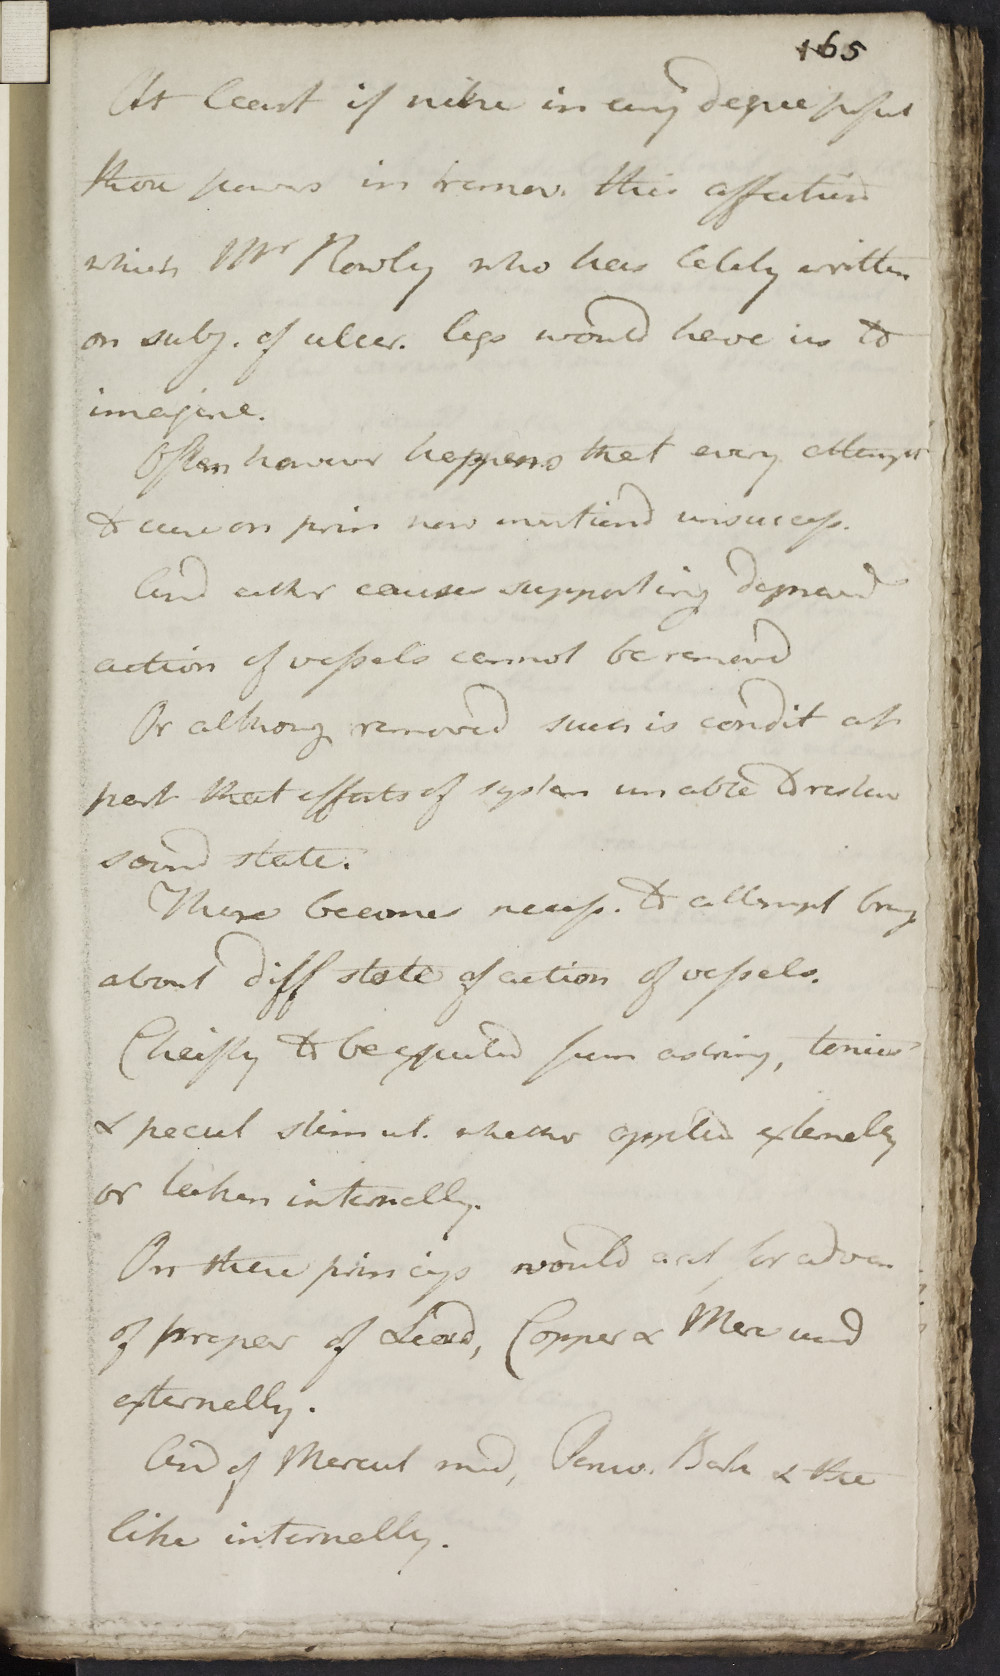 165
At least if nitre in any degree possess
those powers in remov. this affection
which Mr Rowley who has lately written
on subj. of ulcer. legs would have us to
imagine.
Often however happens that every attempt
to cure on prin now mentiend unsuccess.
And either causes supporting depraved
action of vessels cannot be removd
Or althoug removed such is condit of
part that efforts of system unable to restore
sound state.
There becomes necess. to attempt bring
about diff state of action of vessels.
Cheifly to be expected from astring, tonics
& pecul stimul. whether applied externally
or taken internally.
On these princips would act for advan
of prepar of Lead, Copper & Merc used
externally.
And of Mercul med, Peruv. Bark & the
like internally.